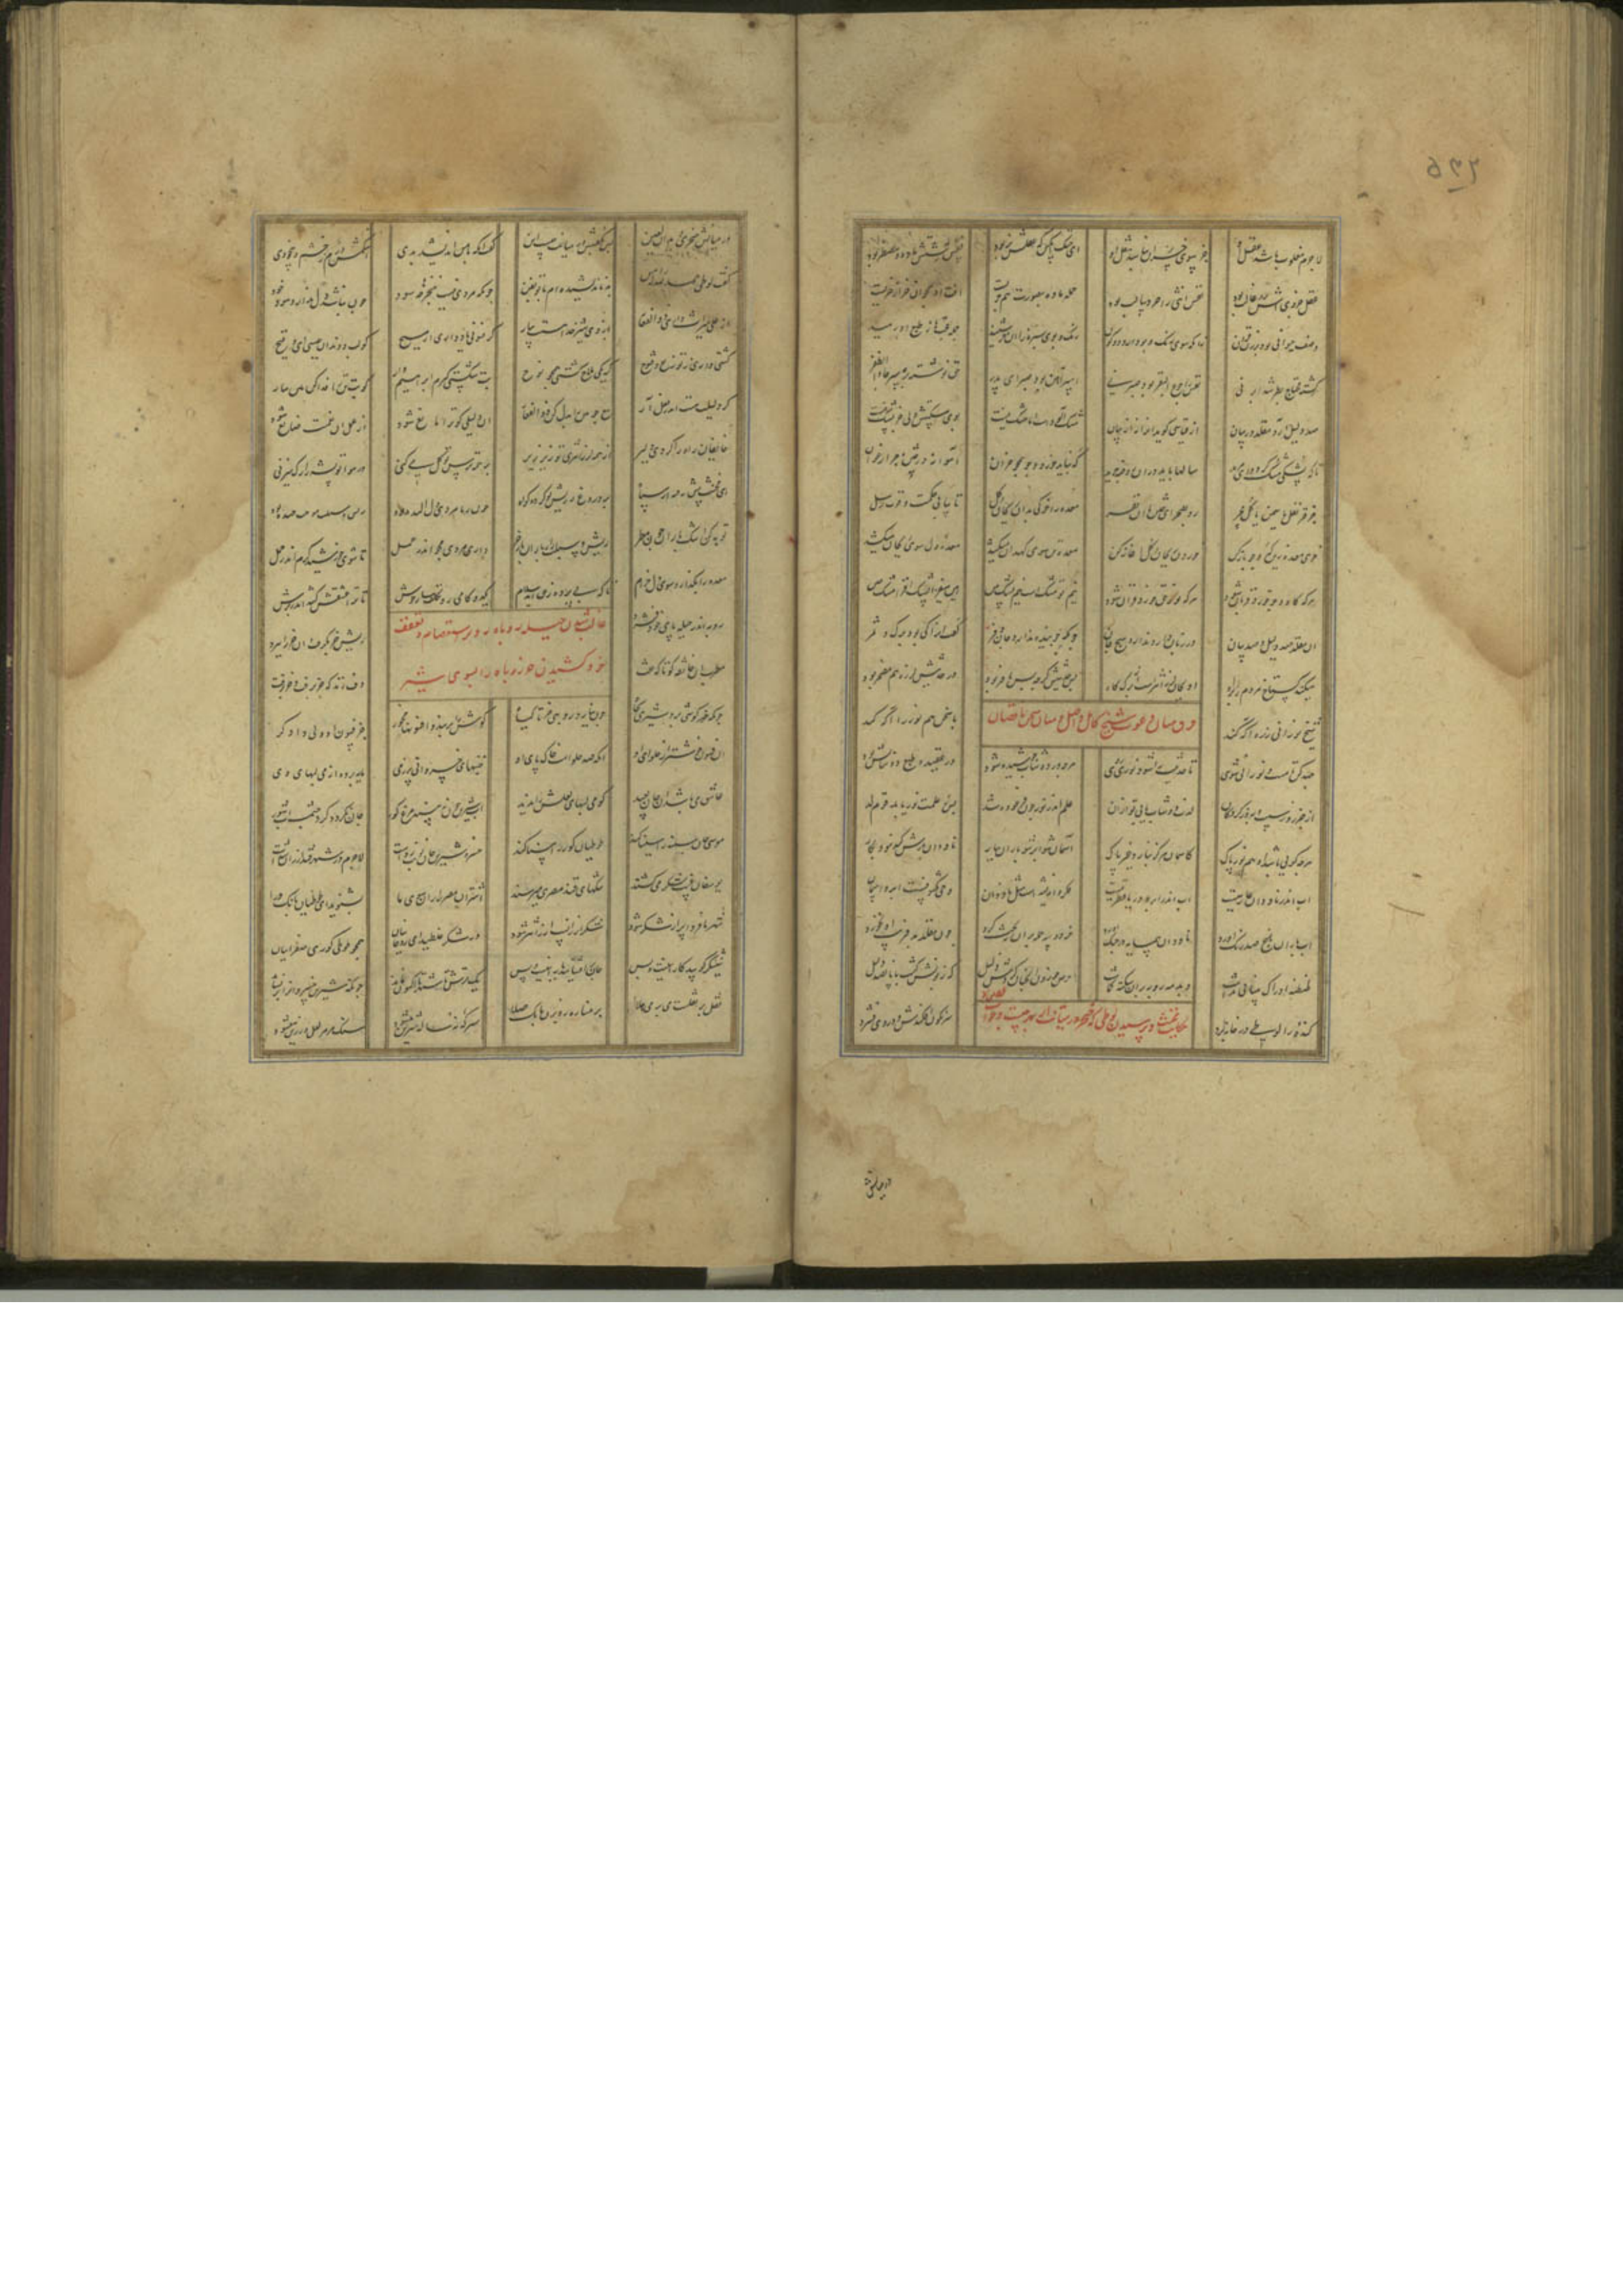 لاجرم مغلوب باشد عقل او جز سوی خسران نباشد نقل او ای خنک آنکس که عقلش نر بود نفس زشتش ماده و مضطر بود
عقل جزوی اش نر و غالب بود نفس انثی را خرد سالب بود حمله ماده بصورت هم جریست آفت او همچو آن خر از خریست
وصف حیوانی بود بر زن فزون زانکه سوی رنگ و بو دارد رکون رنگ و بوی سبزه زار آن خر شنید جمله حجتها ز طبع او رمید
تشنه محتاج مطر شد ابر نی نفس را جوع البقر بود صبر نی اسپر آهن بود صبر ای پدر حق نوشته بر سپر جاء الظفر
صد دلیل آرد مقلد در بیان از قیاسی گوید آنرا نز عیان مشک آلودست اما مشک نیست بوی مشکستش ولی جز پشک نیست
تا که پشکی مشک گردد ای مرید سالها باید در آن روضه چرید که نباید خورد جو همچو خران آهوانه در ختن چر ارغوان
جز قرنفل یا سمن یا گل مچر رو بصحرای ختن با آن نفر معده را خو کن بدان ریحان و گل تا بیابی حکمت و قوت رسل
خوی معده زین که و جو باز کن خوردن ریحان و گل آغاز کن معده تن سوی کهدان میکشد معده دل سوی ریحان میکشد
هر که کاه و جو خورد قربان شود هر که نور حق خورد قرآن شود نیم تو مشک است و نیم پشک هین هین میفزا پشک افزا مشک چین
آن مقلد صد دلیل و صد بیان در زبان آرد ندارد هیچ جان چونکه گوینده ندارد جان و فر گفت او را کی بود برگ و ثمر
میکند گستاخ مردم را براه او بجان لرزانترست از برگ کاه پس حدیثش گرچه بس با فر بود در حدیثش لرزه هم مضمر بود
فرق میان دعوت شیخ کامل واصل و میان سخن ناقصان
شیخ نورانی ز ره آگه کند با سخن هم نور را همره کند
جهد کن تا مست و نورانی شوی تا حدیثت را شود نورش روی هر چه در دوشاب جوشیده شود در عقیده طعم دوشابش بود
از جزر وز سیب و به وز گردگان لذت دوشاب یابی تو از آن علم اندر نور چون فرغرده شد پس ز علمت نور یابد قوم لد
هر چه گویی باشد آن هم نور پاک کاسمان هرگز نبارد غیر پاک آسمان شو ابر شو باران ببار ناودان بارش کند نبود بکار
آب اندر ناودان عاریتیست آب اندر ابر و دریا فطرتیست فکر و اندیشه است مثل ناودان وحی و مکشوفست ابر و آسمان
آب باران باغ صد رنگ آورد ناودان همسایه در جنگ آورد خر دو سه حمله بدان بحث کرد چون مقلد بد فریب او بخورد
طنطنه ادراک بینایی نداشت دمدمه روبه بران سکته گماشت حرص خوردن آنچنان کردش ذلیل که زبونش گشت با پانصد دلیل
حکایت مخنث و پرسیدن لوطی که خنجر در میانت از بهر چیست و جواب
کنده را لوطیی در خانه برد سرنگون افکندش و در وی فشرد
در میانش
در میانش خنجری دید آن لعین پس بگفتش بر میانت چیست این گفت آنکه با من اندیشد بدی اشکمش
گفت لوطی حمد لله را که من بد نیندیشیده ام با تو بفن چونکه مردی نیست خنجرها چه سود چون نباشد دل ندارد سود خود
از علی میراث داری ذوالفقار بازوی شیر خدا هستت بیار گر فسونی یاد داری از مسیح کو لب و دندان عیسی ای وقیح
کشتی سازی ز توزیع و فتوح کو یکی ملاح کشتی همچو نوح بت شکستی گیرم ابراهیم وار کو بت تن را فدا کردن بنار
گر دلیلت هست اندر فعل آر تیغ چوبین را بدان کن ذوالفقار آن دلیلی کو ترا مانع شود از عمل آن نقمت صانع بود
خایفان راه را کردی دلیر از همه لرزانتری تو زیر زیر بر همه درس توکل میکنی در هوا تو پشه را رگ میزنی
ای مخنث پیش رفته از سپاه بر دروغ ریش تو گواه چون ز نامردی دل آکنده بود ریش و سبلت موجب خنده بود
توبه کن اشک باران چون مطر ریش و سبلت را ز خنده باز خر داروی مردی بخور اندر عمل تا شوی خورشید گرم اندر حمل
معده را بگذار و سوی دل خرام تا که بی پرده ز حق آید سلام یکدو گامی رو تکلف ساز خوش تا ترا عشقش کشد اندر برش
غالب شدن حیله روباه بر استعصام و تعفف
خر و کشیدن خر روباه را بسوی شیر
روبه اندر حیله پای خود فشرد ریش خر بگرفت آن خر را ببرد
مطرب آن خانقه کو تا که تفت دف زند که خر برفت و خر برفت
چونکه خرگوشی برد شیری بچاه چون نیارد روبهی خر تا گیاه گوش را بربند و افسونها مخور جز فسون آن ولی دادگر
آن فسون خوشتر از حلوای او آنکه صد حلواست خاک پای او خنبهای خسروانی پر ز می مایه برده از می لبهای وی
عاشق می باشد آن جان بعید کو می لبهای لعلش را ندید آب شیرین چون نبیند مرغ کور چون نگردد گرد چشمه آب شور
موسی جان سینه را سینا کند طوطیان کور را بینا کند خسرو شیرین جان نوبت زدست لاجرم در شهر قند ارزان شدست
یوسفان غیب لشکر می کشند تنگهای قند مصری میرسند اشتران مصر را رو سوی ما بشنوید ای طوطیان بانگ درا
شهر ما فردا پر از شکر شود شکر ارزانست ارزانتر شود در شکر غلطید ای حلواییان همچو طوطی کوری صفراییان
نیشکر کوبید کار اینست و بس جان برافشانید یار اینست و بس یک ترش در شهر ما اکنون نماند چونکه شیرین خسروان را برنشاند
نقل بر نقلست می بر می هلا بر مناره رو بزن بانگ صلا سرکه نه ساله شیرین میشود سنگ مرمر لعل و زرین میشود